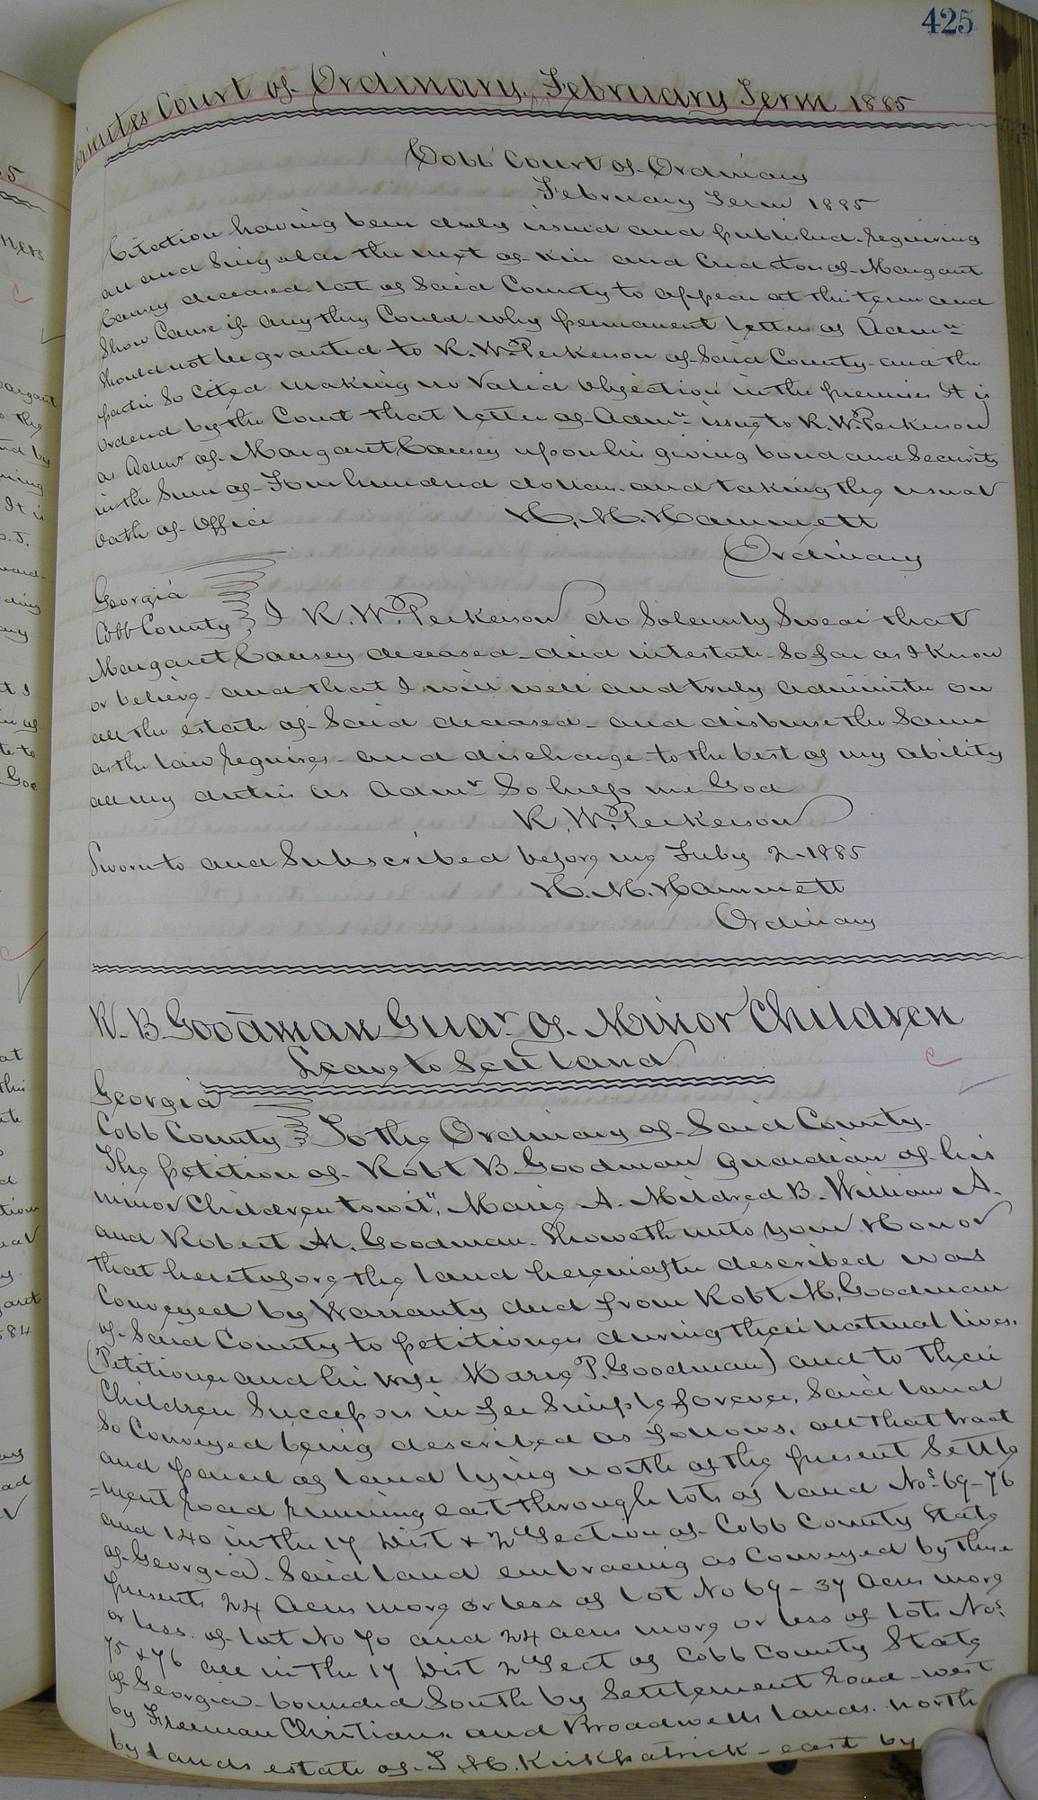 425
Minutes Court of Ordinary, February Term 1885
Cobb Court of Ordinary
February Term 1885
Citation having been duly issued and published requiring
all and Singular the next of Kin and Creditors of Margaret
Causey deceased late of Said County to appear at this term and
Show Cause if any they Could why permanent letters of Admn
Should not be granted to R. W. Perkerson of Said County and the
parties So Cited making no Valid objection in the premises It is
ordered by the Court that letters of Admn issue to R. W. Perkerson
as Admr of Margaret Causey upon his giving bond and Security
in the Sum of Four hundred dollars and taking the usual
oath of Office
H. M. Hammett
Ordinary
Georgia
Cobb County I R. W. Perkerson do Solemnly Swear that
Margaret Causey deceased died intestate So far as I Know
or believe and that I will well and truly administer on
all the estate of Said deceased and disburse the Same
as the law requires and discharge to the best of my ability
all my duties as Admr So help me God
R. W. Perkerson
Sworn to and Subscribed before me July 2 1885
H. M. Hammett
Ordinary
R. B. Goodman Guar. of Minor Children
Leave to Sell land
Georgia
Cobb County To the Ordinary of Said County.
The petition of Robt B. Goodman guardian of his
minor Children towit, Marie A. Mildred B. William A.
and Robert M. Goodman Showeth unto your Honor
that heretofore the land hereinafter described was
Conveyed by Warranty deed from Robt M. Goodman
of Said County to petitioner during their natural lives.
(Petitioner and his wife Marie P. Goodman) and to their
Children Successors in fee Simple forever, Said land
So Conveyed being described as follows, all that tract
and parcel of land lying north of the present Settle
=ment road running east through lots of land Nos 69-76
and 140 in the 17 Dist & 2d Section of Cobb County State
of Georgia. Said land embracing as Conveyed by these
presents 24 Acres more or less of lot No 69 - 37 Acres more
or less of lot No 70 and 24 acres more or less of lots Nos
75 & 76 all in the 17 Dist 2d Sect of Cobb County State
of Georgia bounded South by Settlement road west
by Freeman Christians and Broadwells lands. north
by lands estate of J. M. Kirkpatrick - east by